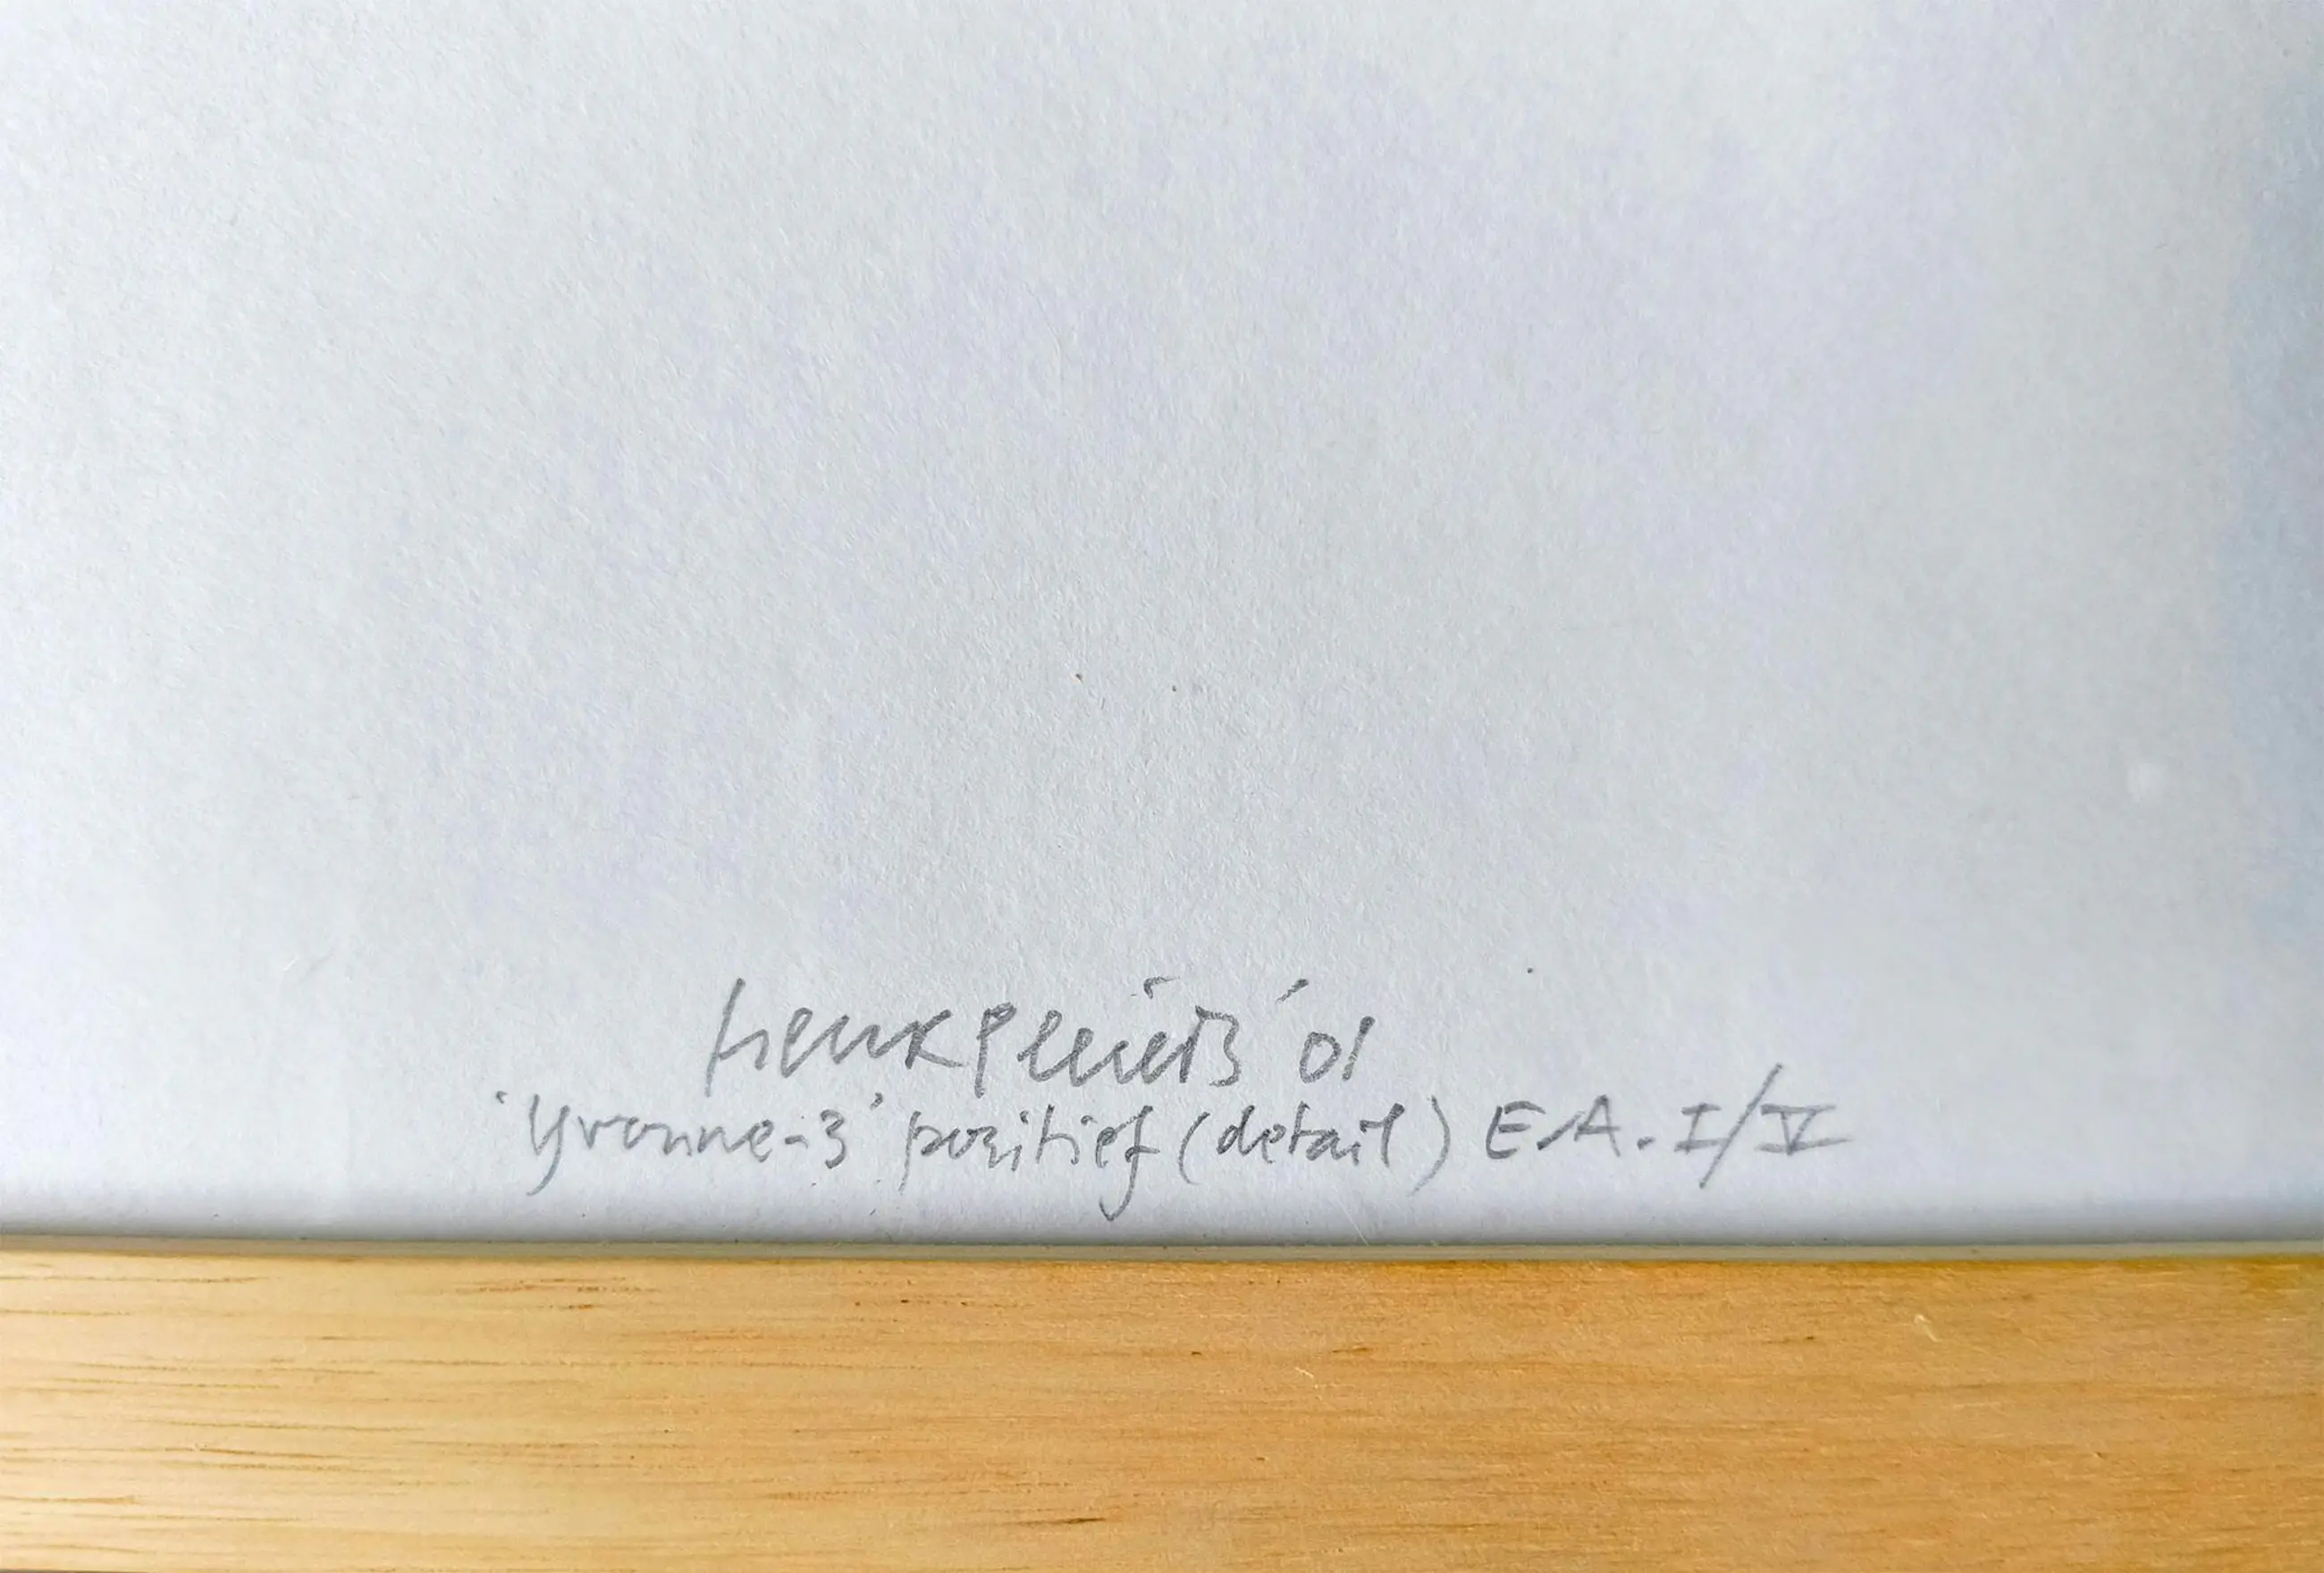 Henk Pleiets '01
'Yvonne-3' positief (detail) E.A. I/V